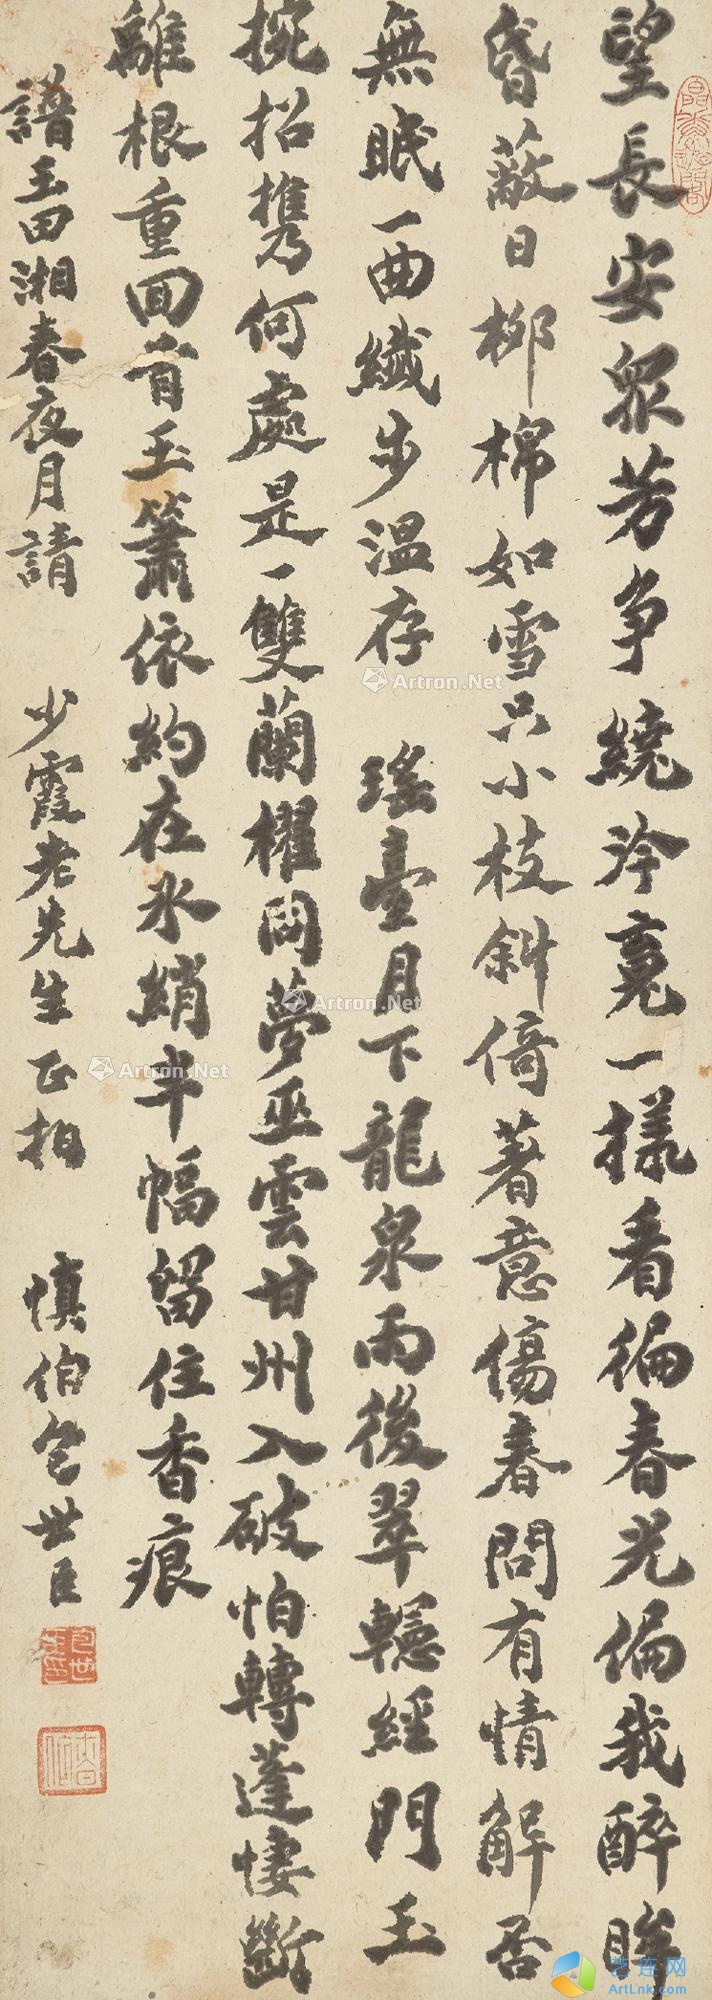 望長安眾芳爭繞汵竟一揉看徧春光偏我醉眸
昏蔽日柳棉如雪只小枝斜倚著意傷春問有情解否
無眠一曲纖步溫存 瑤臺月下龍泉雨後翠轣經門玉
捥招携何處是一雙蘭櫂閊夢巫雲甘州入破怕轉蓬悽斷
離根重回首玉簫依約在氷綃半幅留住香痕
譜玉田湘春夜月請 少霞老先生正拍 慎伯包世臣
Artron.Net
Artron.Net
Artron.Net
艺连网
ArtLnk.com